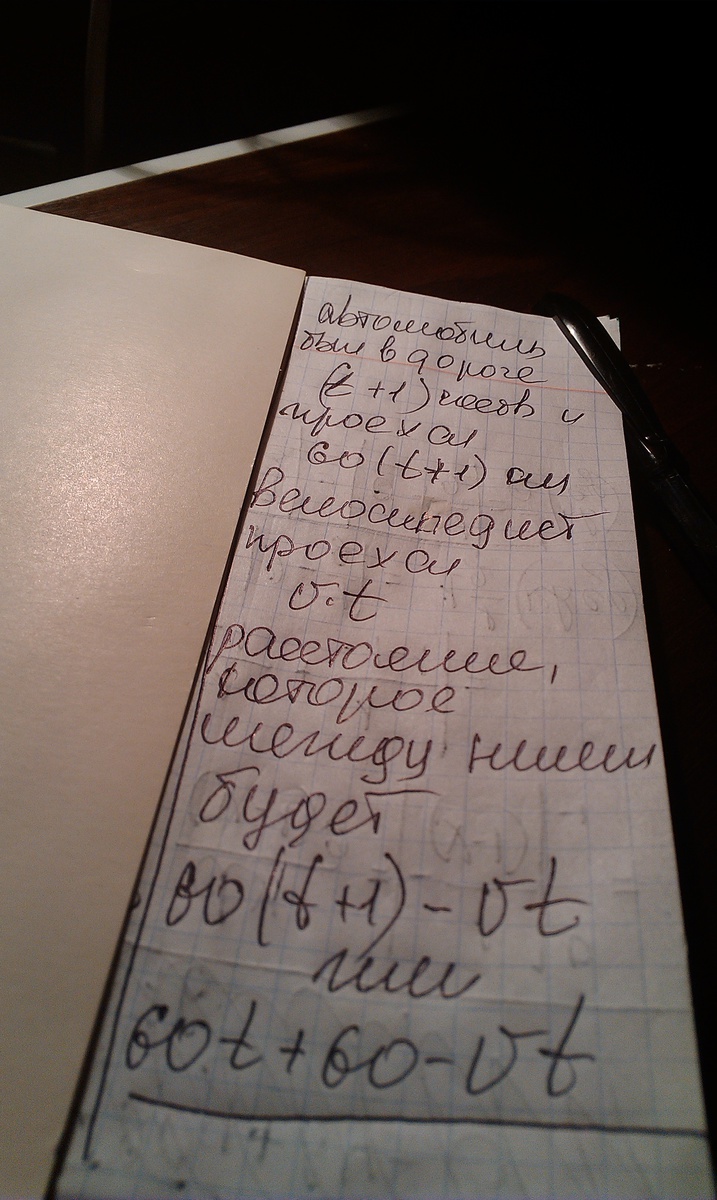 автомобиль
был в дороге
(t+1) часов и
проехал
60(t+1) км
велосипедист
проехал
v·t
расстояние,
которое
между ними
будет
60(t+1)-vt
или
60t+60-vt